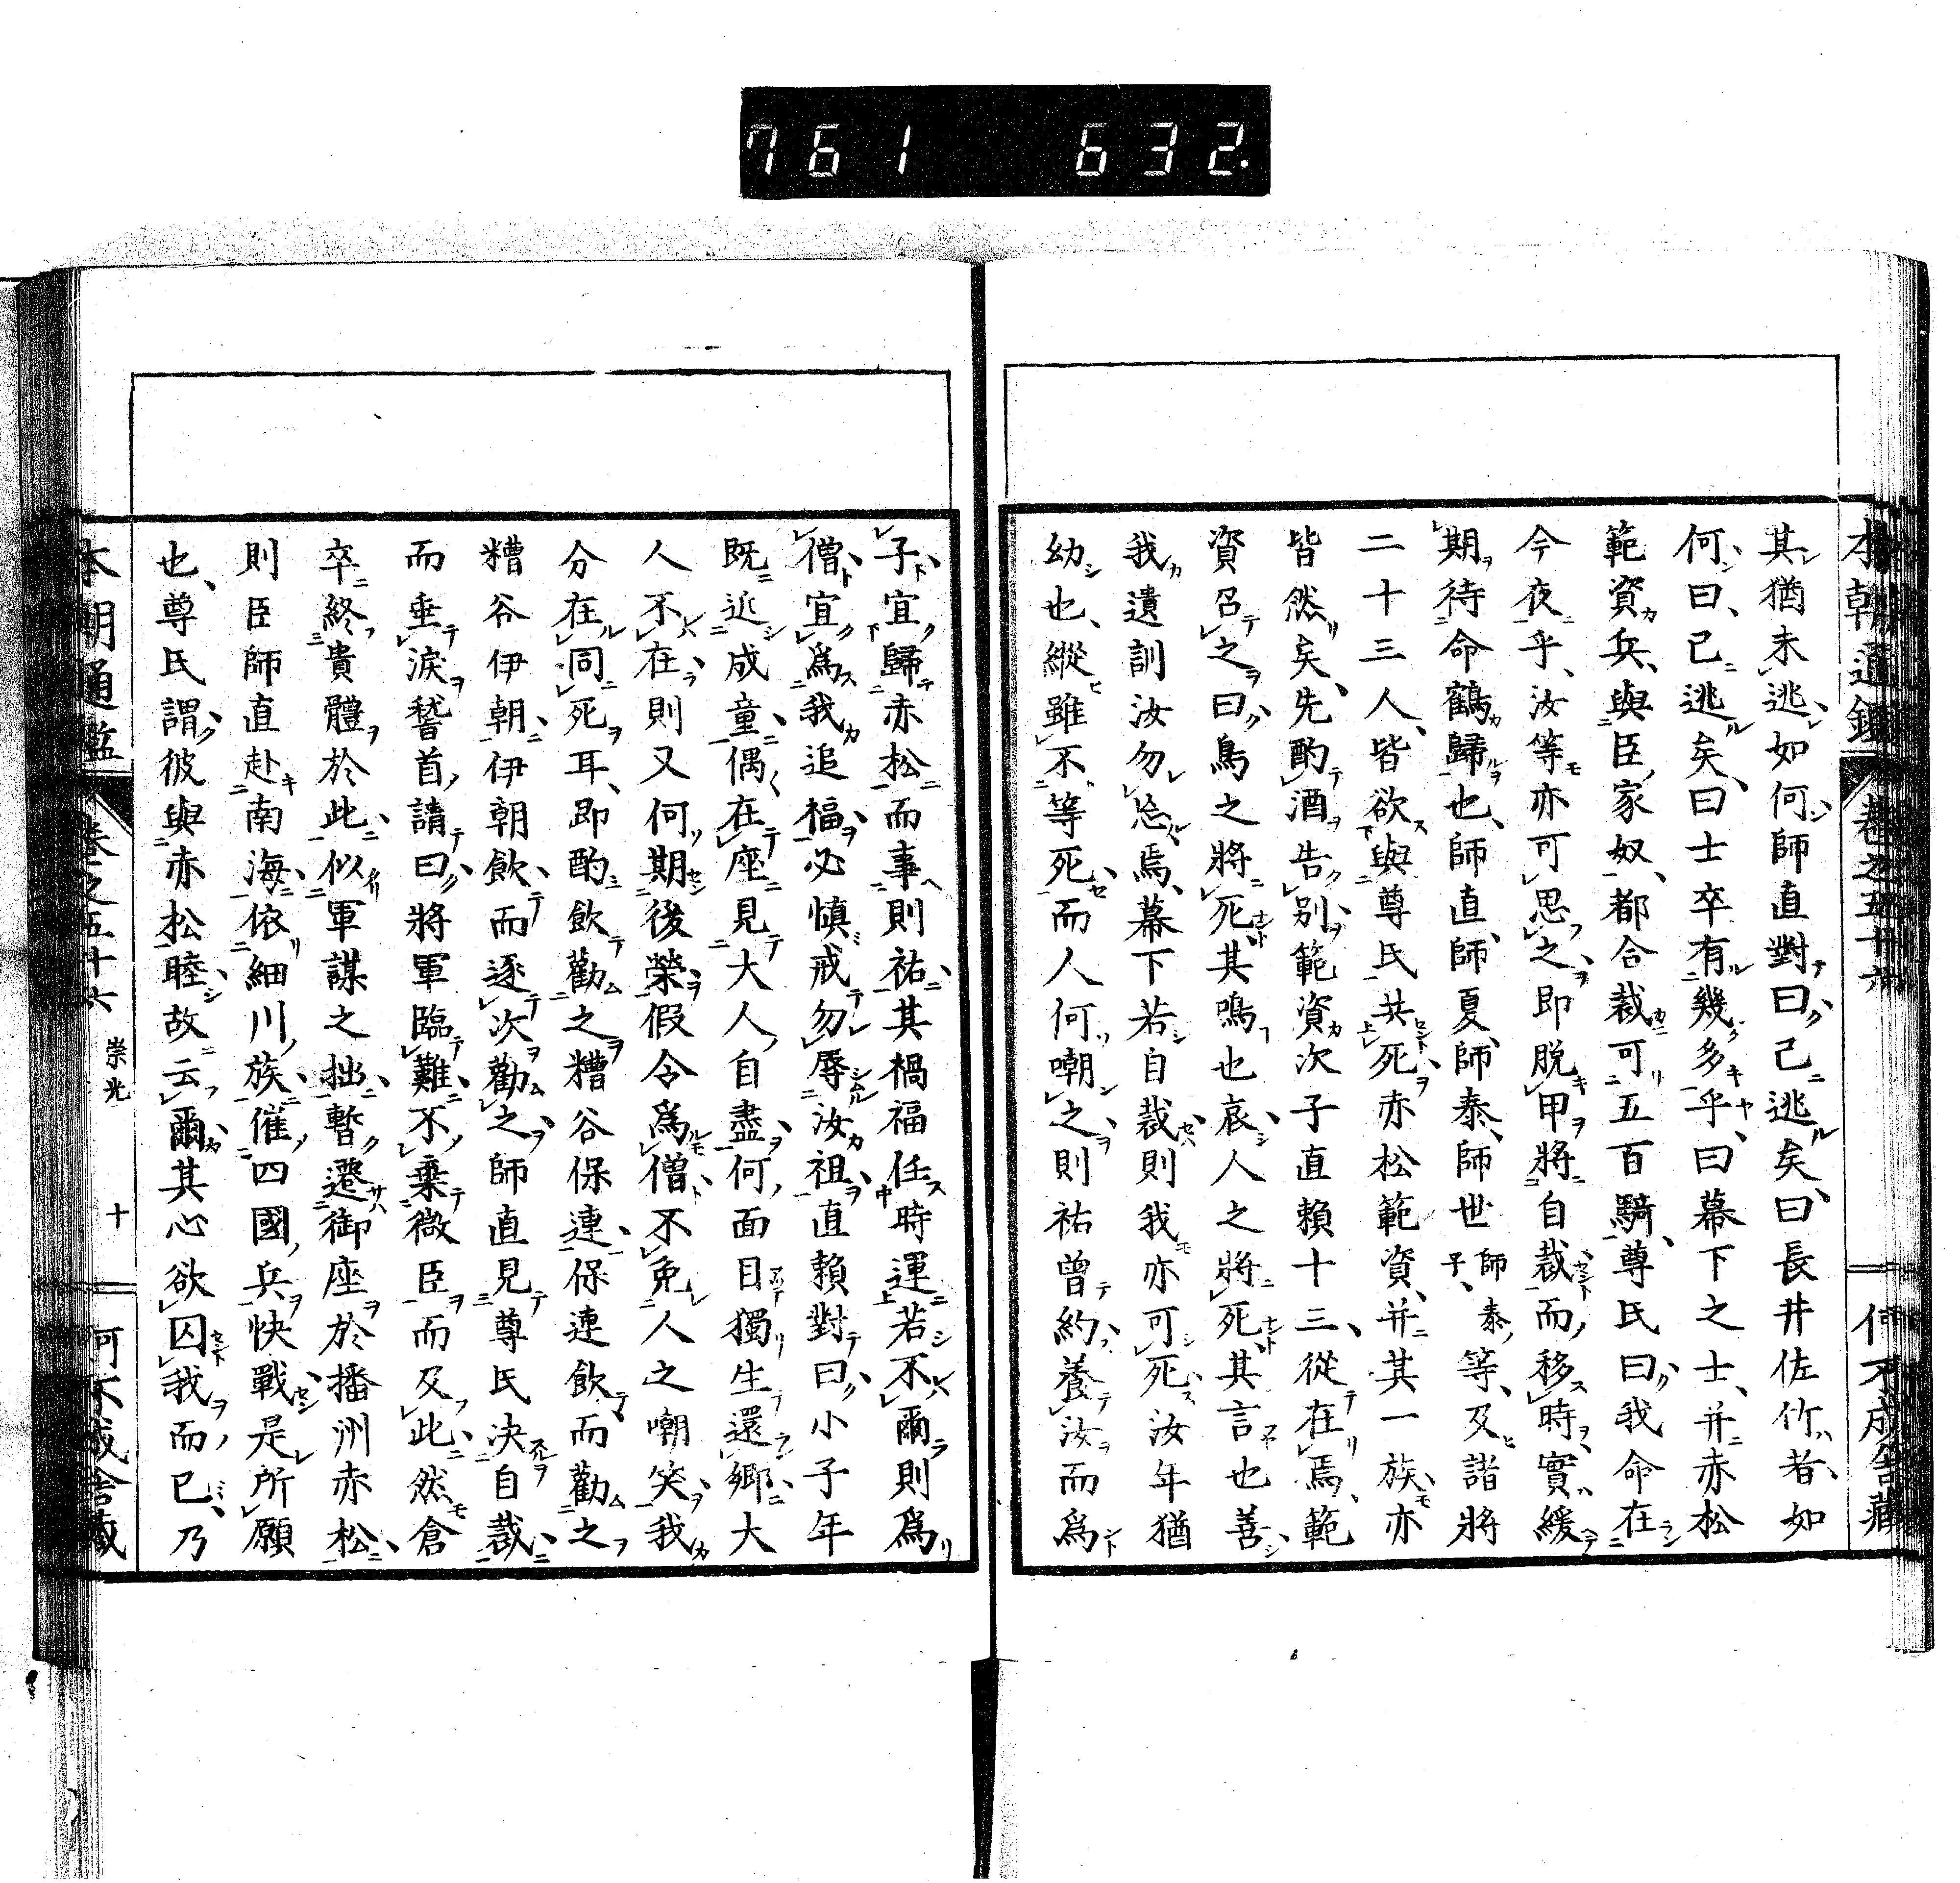 761 632.
本朝通鑑 卷之五十六 何不成舍藏
其猶未逃如何師直對曰己逃矣曰長井佐竹者如
何曰己逃矣曰士卒有幾多乎曰幕下之士并赤松
範資兵與臣家奴都合裁可五百騎尊氏曰我命在
今夜乎汝等亦可思之即脱甲將自裁而移時實緩
期待命鶴歸也師直師夏師泰師世師泰子等及諧將
二十三人皆欲與尊氏共死赤松範資并其一族亦
皆然矣先酌酒告別範資次子直賴十三從在焉範
資召之曰鳥之將死其鳴也哀人之將死其言也善
我遺訓汝勿忘焉幕下若自裁則我亦可死汝年猶
幼也縱雖不等死而人何嘲之則祐曾約養汝而爲
子宜歸赤松而事則祐其禍福任時運若不爾則爲
僧宜爲我追福必慎戒勿辱汝祖直賴對曰小子年
既近成童偶在座見大人自盡何面目獨生還鄉大
人不在則又何期後榮假令爲僧不免人之嘲笑我
分在同死耳即酌飲勸之糟谷保連保連飲而勸之
糟谷伊朝伊朝飲而逐次勸之師直見尊氏決自裁
而垂淚稽首請曰將軍臨難不棄微臣而及此然倉
卒終貴體於此似軍謀之拙暫遷御座於播洲赤松
則臣師直赴南海依細川族催四國兵快戰是所願
也尊氏謂彼與赤松睦故云爾其心欲囚我而已乃
本朝通鑑 卷之五十六 崇光 十 何不成舍藏